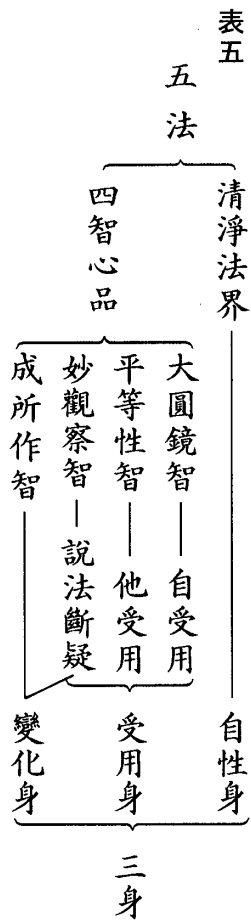 表五
五法
清淨法界
自性身
四智心品
大圓鏡智
自受用
平等性智
他受用
妙觀察智
說法斷疑
成所作智
受用身
變化身
三身